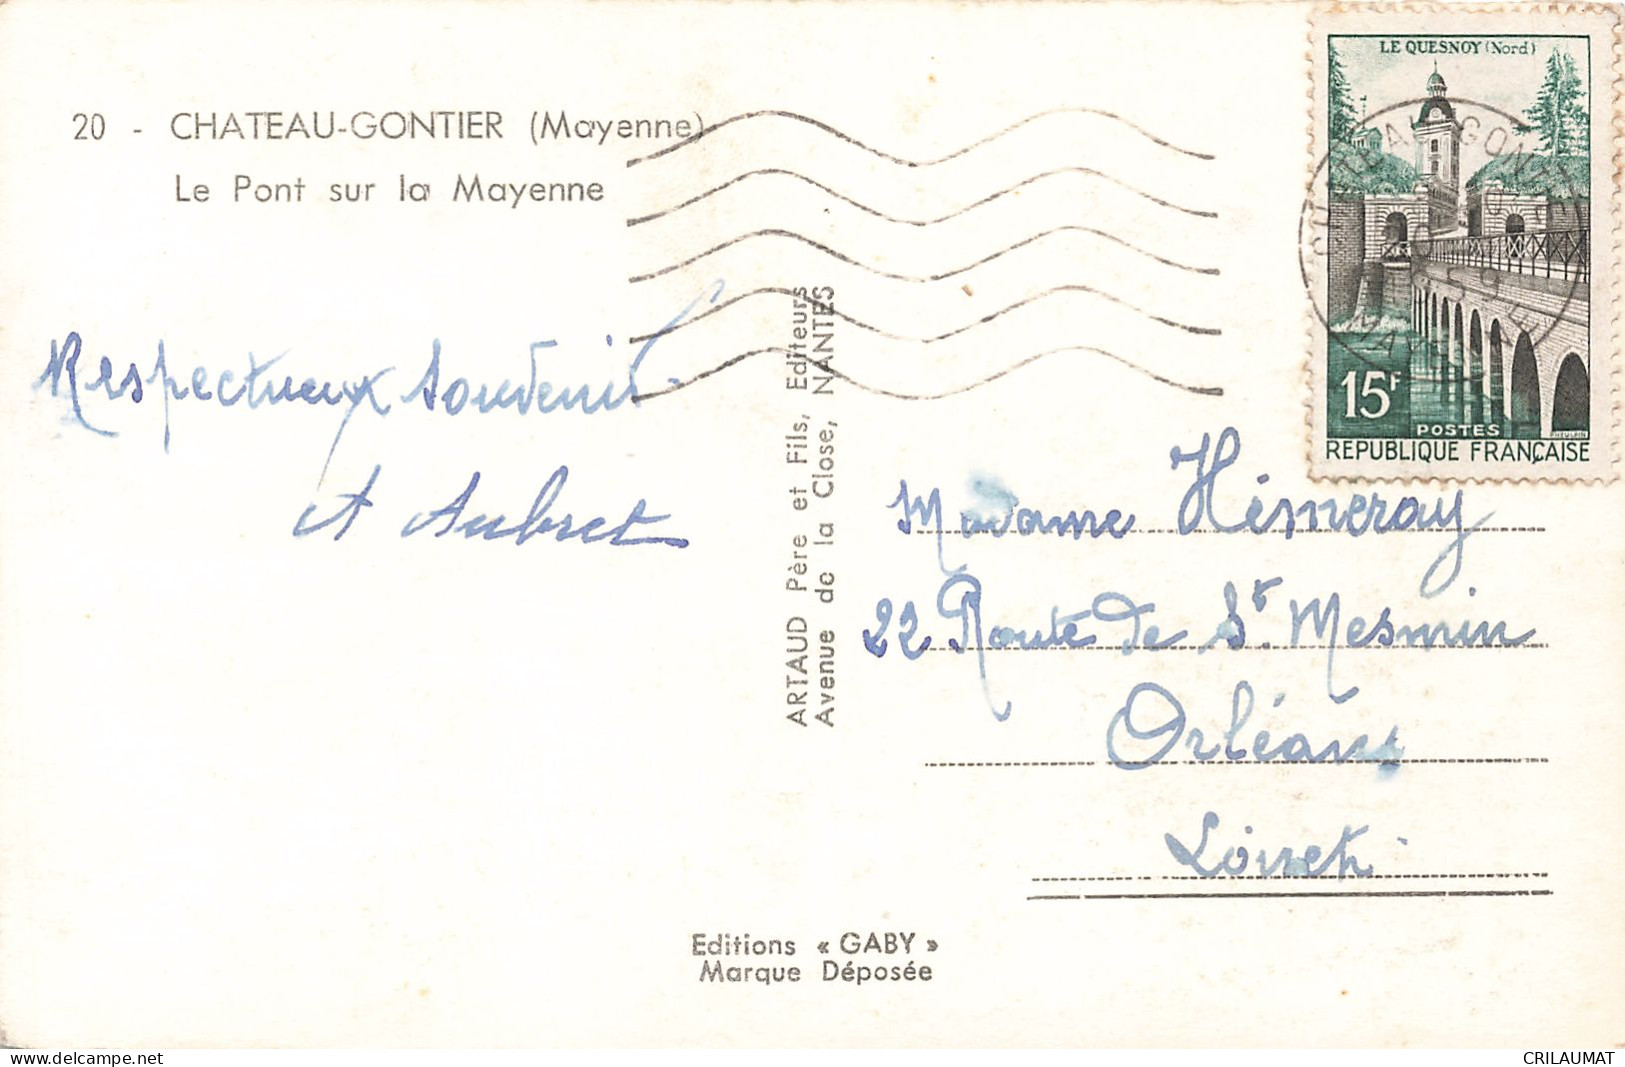 20 - CHATEAU-GONTIER (Mayenne)
Le Pont sur la Mayenne
Respectueux Souvenir
A Aubret
ARTAUD Père et Fils, Editeurs
Avenue de la Close, NANTES
LE QUESNOY (Nord)
15F
POSTES
REPUBLIQUE FRANÇAISE
Madame Hémeray
22 Route de St. Mesmin
Orléans
Loiret
Editions « GABY »
Marque Déposée
www.delcampe.net
CRILAUMAT